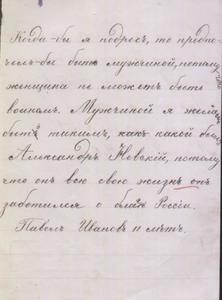 Когда-бы я подросъ, то предпо-
челъ-бы быть мужчиной, потому что
женщина не можетъ быть
воиномъ. Мужчиной я желалъ
быть такимъ, какъ какой былъ
Александръ Невскій, потому
что онъ всю свою жизнь онъ
заботился о благѣ Россіи.
Павелъ Ивановъ 11 лѣтъ.